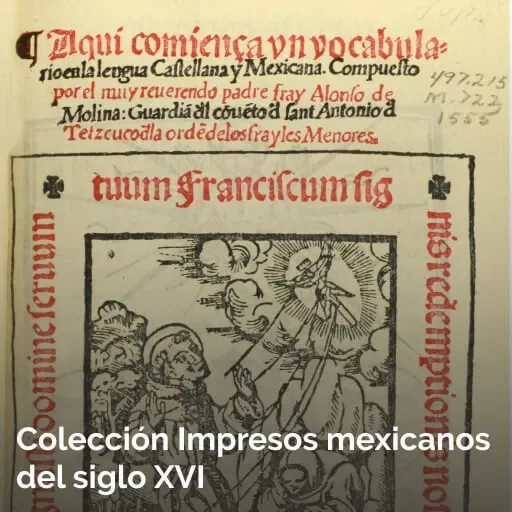 ¶ Aqui comiença vn vocabula-
rio en la lengua Castellana y Mexicana. Compuesto
por el muy reuerendo padre fray Alonso de
Molina: Guardiã dl cõuẽto d sant Antonio d
Tetzcuco dla ordẽ delos frayles Menores.
497.215
M.722
1555
tuum Franciscum sig
nis redemptionis no
domine seruum
Colección Impresos mexicanos
del siglo XVI